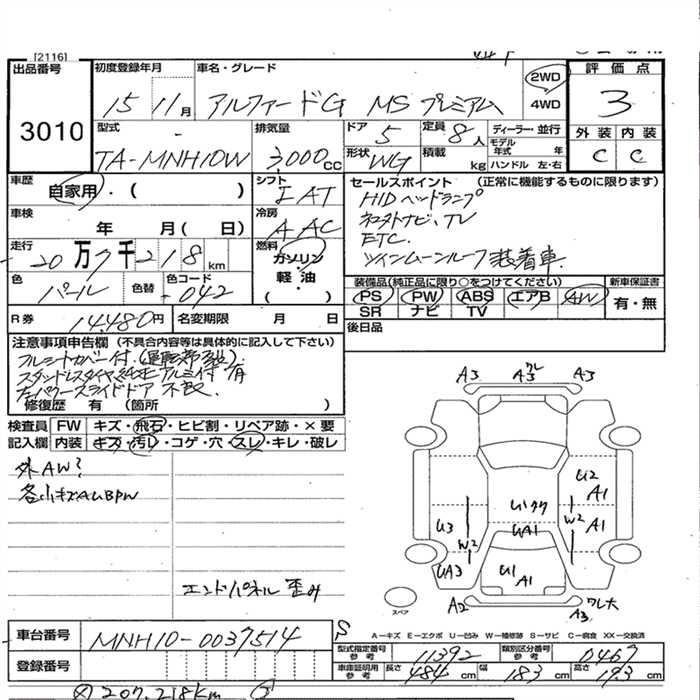 [2116]
出品番号
3010
初度登録年月
15 11月
車名・グレード
アルファードG MSプレミアム
2WD
4WD
評価点
3
外装 内装
C C
型式
TA-MNH10W
排気量
3,000cc
ドア 5
定員 8人
形状 WG
積載 kg
ディーラー・並行
モデル年式 年
ハンドル 左・右
車歴
自家用・( )
シフト
IAT
車検
年 月(日)
冷房
AAC
走行
20万7千218km
燃料
ガソリン
軽・油
・( )
色
パール
色替
色コード
042
R券
14,480円
名変期限 月 日
セールスポイント (正常に機能するものに限ります)
HIDヘッドランプ
ETC
ツインムーンルーフ装着車
装備品(純正品に限り○をつけてください)
PS PW ABS エアB AW
SR ナビ TV
新車保証書
有・無
後日品
注意事項申告欄 (不具合内容等は具体的に記入して下さい)
スタッドレスタイヤ、純正アルミ付 有
左パワースライドドア 不良
修復歴 有 (箇所 )
検査員記入欄
FW キズ・飛石・ヒビ割・リペア跡・×要
内装 キズ・汚レ・コゲ・穴・スレ・キレ・破レ
外AW?
各小キズAUBPW
エンドパネル 歪み
A3 A3 ワレ A3
U2
A1
U1 ワワ
UA1
U3
W2
W2
A1
UA3
U1
A1
A2
A3 ワレ大
スペア
A-キズ E-エクボ U-凹み W-補修跡 S-サビ C-腐食 XX-交換済
車台番号
MNH10-0037514
登録番号
型式指定番号 参考
11392
類別区分番号 参考
0467
車庫証明用 参考
長さ 484cm
幅 183cm
高さ 193cm
207,218km